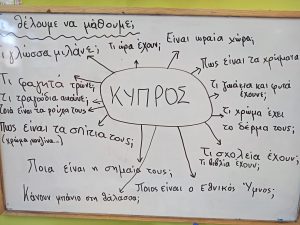 θέλουμε να μάθουμε;
γλώσσα μιλάνε;
Τι ώρα έχουν;
Είναι ωραία χώρα;
Πως είναι τα χρήματα
Τι φαγητά τρώνε;
Τι τραγούδια ακούνε;
Ποιά είναι τα ρούχα τους
ΚΥΠΡΟΣ
Τι ζωάκια και φυτά
έχουνε;
Πως είναι τα σπίτια τους;
(χρώμα,
Τι χρώμα έχει
το δέρμα τους;
Τι σχολεία έχουν;
Τι βιβλία έχουν;
Ποια είναι η σημαία τους;
Ποιος είναι ο Εθνικός Ύμνος;
Κάνουν μπάνιο στη θάλασσα;